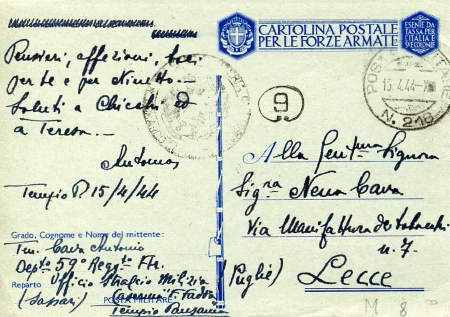 CARTOLINA POSTALE
PER LE FORZE ARMATE
ESENTE DA
TASSA PER
L'ITALIA
E COLONIE
Pensieri, affezioni, baci
per te e per Ninetto
Saluti a Chicchi ed
a Teresa
Antonio
Tempio P. 15/4/44
POSTA MILITARE
15.4.44
N. 216
9
Alla Gent.ma Signora
Sig.ra Nena Cava
Via Manifattura dei Tabacchi
n. 7
(Puglie) Lecce
Grado, Cognome e Nome del mittente:
Ten. Cava Antonio
Dep.to 59° Regg.to Ftr.
Reparto Ufficio Stralcio Milizia
(Sassari) Caserma Fadda
POSTA MILITARE
Tempio Pausania
M 8